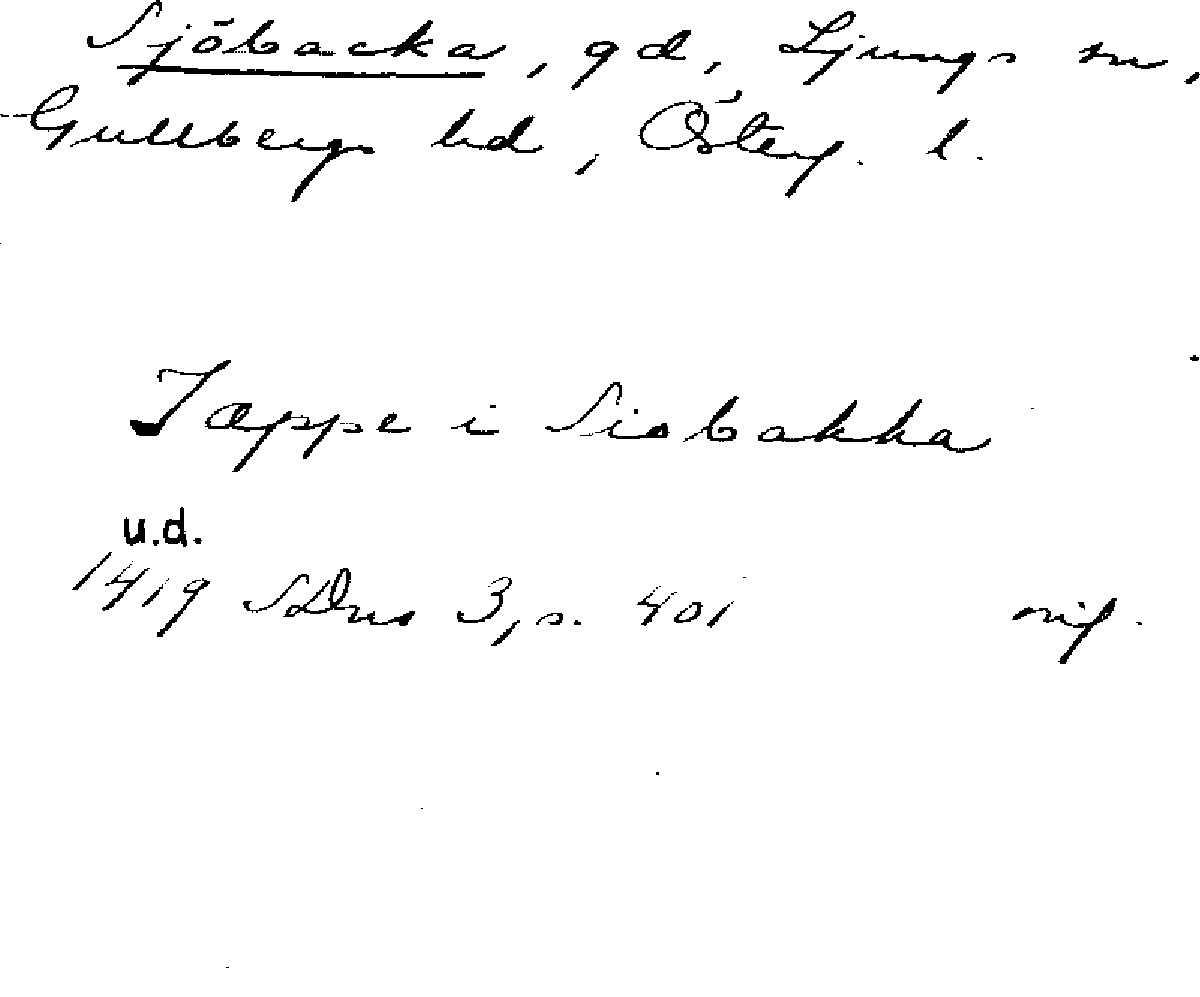 Sjöbacka, gd, Ljungs sn,
Gullbergs hd, Österg. l.
Jæppe i Siobakka
u.d.
1419 SDns 3, s. 401 orig.